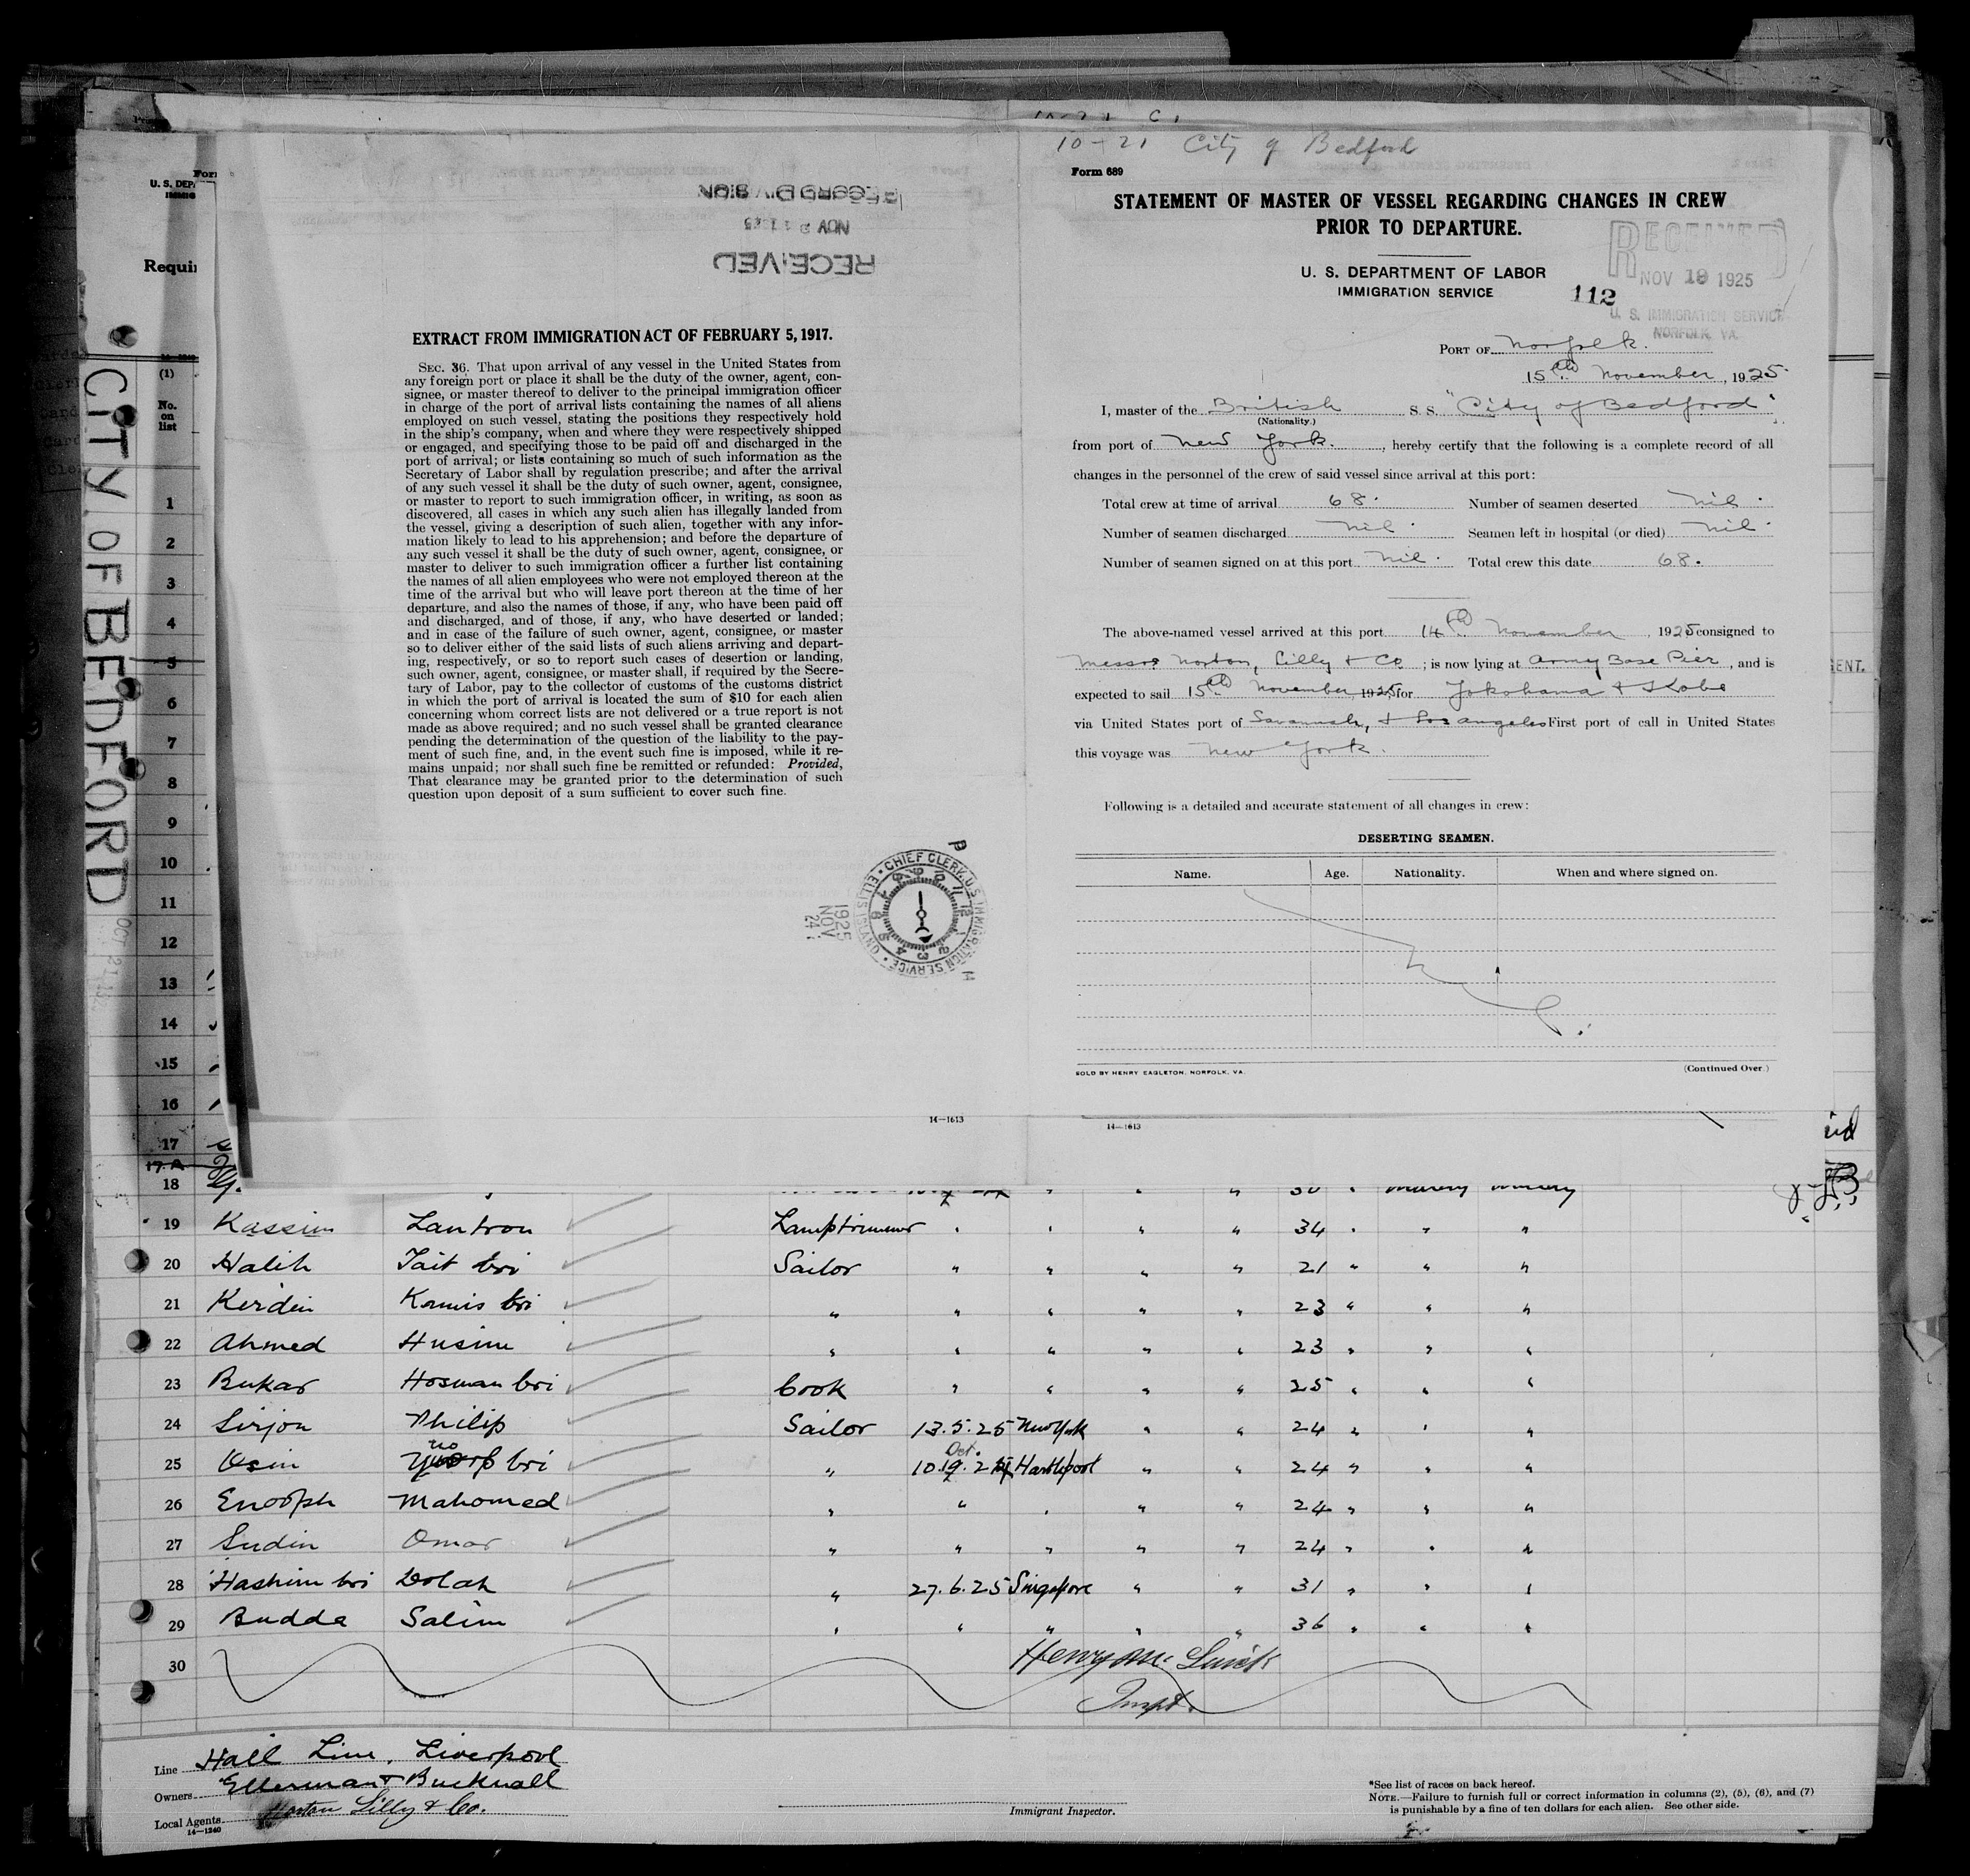 10-21 City of Bedford
Form 689
STATEMENT OF MASTER OF VESSEL REGARDING CHANGES IN CREW
PRIOR TO DEPARTURE.
U. S. DEPARTMENT OF LABOR
IMMIGRATION SERVICE
RECEIVED
NOV 19 1925
U. S. IMMIGRATION SERVICE
NORFOLK, VA.
112
PORT OF Norfolk.
15th November, 1925.
I, master of the British S. S. "City of Bedford"
(Nationality.)
from port of New York., hereby certify that the following is a complete record of all
changes in the personnel of the crew of said vessel since arrival at this port:
Total crew at time of arrival 68. Number of seamen deserted Nil.
Number of seamen discharged Nil. Seamen left in hospital (or died) Nil.
Number of seamen signed on at this port Nil. Total crew this date 68.
The above-named vessel arrived at this port 14th November, 1925 consigned to
Messrs Norton, Lilly & Co; is now lying at Army Base Pier, and is
expected to sail 15th November 1925 for Yokohama & Kobe
via United States port of Savannah, & Los Angeles First port of call in United States
this voyage was New York.
Following is a detailed and accurate statement of all changes in crew:
DESERTING SEAMEN.
Name. Age. Nationality. When and where signed on.
SOLD BY HENRY EAGLETON, NORFOLK, VA.
(Continued Over.)
14—1613
RECORD DIVISION
NOV
RECEIVED
EXTRACT FROM IMMIGRATION ACT OF FEBRUARY 5, 1917.
SEC. 36. That upon arrival of any vessel in the United States from
any foreign port or place it shall be the duty of the owner, agent, con-
signee, or master thereof to deliver to the principal immigration officer
in charge of the port of arrival lists containing the names of all aliens
employed on such vessel, stating the positions they respectively hold
in the ship's company, when and where they were respectively shipped
or engaged, and specifying those to be paid off and discharged in the
port of arrival; or lists containing so much of such information as the
Secretary of Labor shall by regulation prescribe; and after the arrival
of any such vessel it shall be the duty of such owner, agent, consignee,
or master to report to such immigration officer, in writing, as soon as
discovered, all cases in which any such alien has illegally landed from
the vessel, giving a description of such alien, together with any infor-
mation likely to lead to his apprehension; and before the departure of
any such vessel it shall be the duty of such owner, agent, consignee, or
master to deliver to such immigration officer a further list containing
the names of all alien employees who were not employed thereon at the
time of the arrival but who will leave port thereon at the time of her
departure, and also the names of those, if any, who have been paid off
and discharged, and of those, if any, who have deserted or landed;
and in case of the failure of such owner, agent, consignee, or master
so to deliver either of the said lists of such aliens arriving and depart-
ing, respectively, or so to report such cases of desertion or landing,
such owner, agent, consignee, or master shall, if required by the Secre-
tary of Labor, pay to the collector of customs of the customs district
in which the port of arrival is located the sum of $10 for each alien
concerning whom correct lists are not delivered or a true report is not
made as above required; and no such vessel shall be granted clearance
pending the determination of the question of the liability to the pay-
ment of such fine, and, in the event such fine is imposed, while it re-
mains unpaid; nor shall such fine be remitted or refunded: Provided,
That clearance may be granted prior to the determination of such
question upon deposit of a sum sufficient to cover such fine.
CHIEF CLERK, U.S. IMMIGRATION SERVICE
ELLIS ISLAND
1925
NOV
24
14—1613
CITY OF BEDFORD
OCT 21
U. S. DEP
Requi
(1)
No.
on
list
1
2
3
4
5
6
7
8
9
10
11
12
13
14
15
16
17
17-A
18
19 Kassim Lantron Lamptrimmer " " " " 34 " " "
20 Halih Tait bri Sailor " " " " 21 " " "
21 Kerdin Kamis bri " " " " " 23 " " "
22 Ahmed Husim " " " " " 23 " " "
23 Bukar Hosman bri Cook " " " " 25 " " "
24 Sirjon Philip Sailor 13.5.25 New York " " 24 " " "
25 Osin bri " Hartlepool " " 24 " " "
26 Enorph Mahomed " " " " " 24 " " "
27 Sudin Omar " " " " " 24 " " "
28 Hashim bri Dolah " 27.6.25 Singapore " " 31 " " "
29 Budda Salim " " " " " 36 " " "
30
Inspt.
Line Hall Line, Liverpool
Owners Ellerman & Bucknall
Local Agents Norton Lilly & Co.
14—1240
Immigrant Inspector.
*See list of races on back hereof.
NOTE.—Failure to furnish full or correct information in columns (2), (5), (6), and (7)
is punishable by a fine of ten dollars for each alien. See other side.